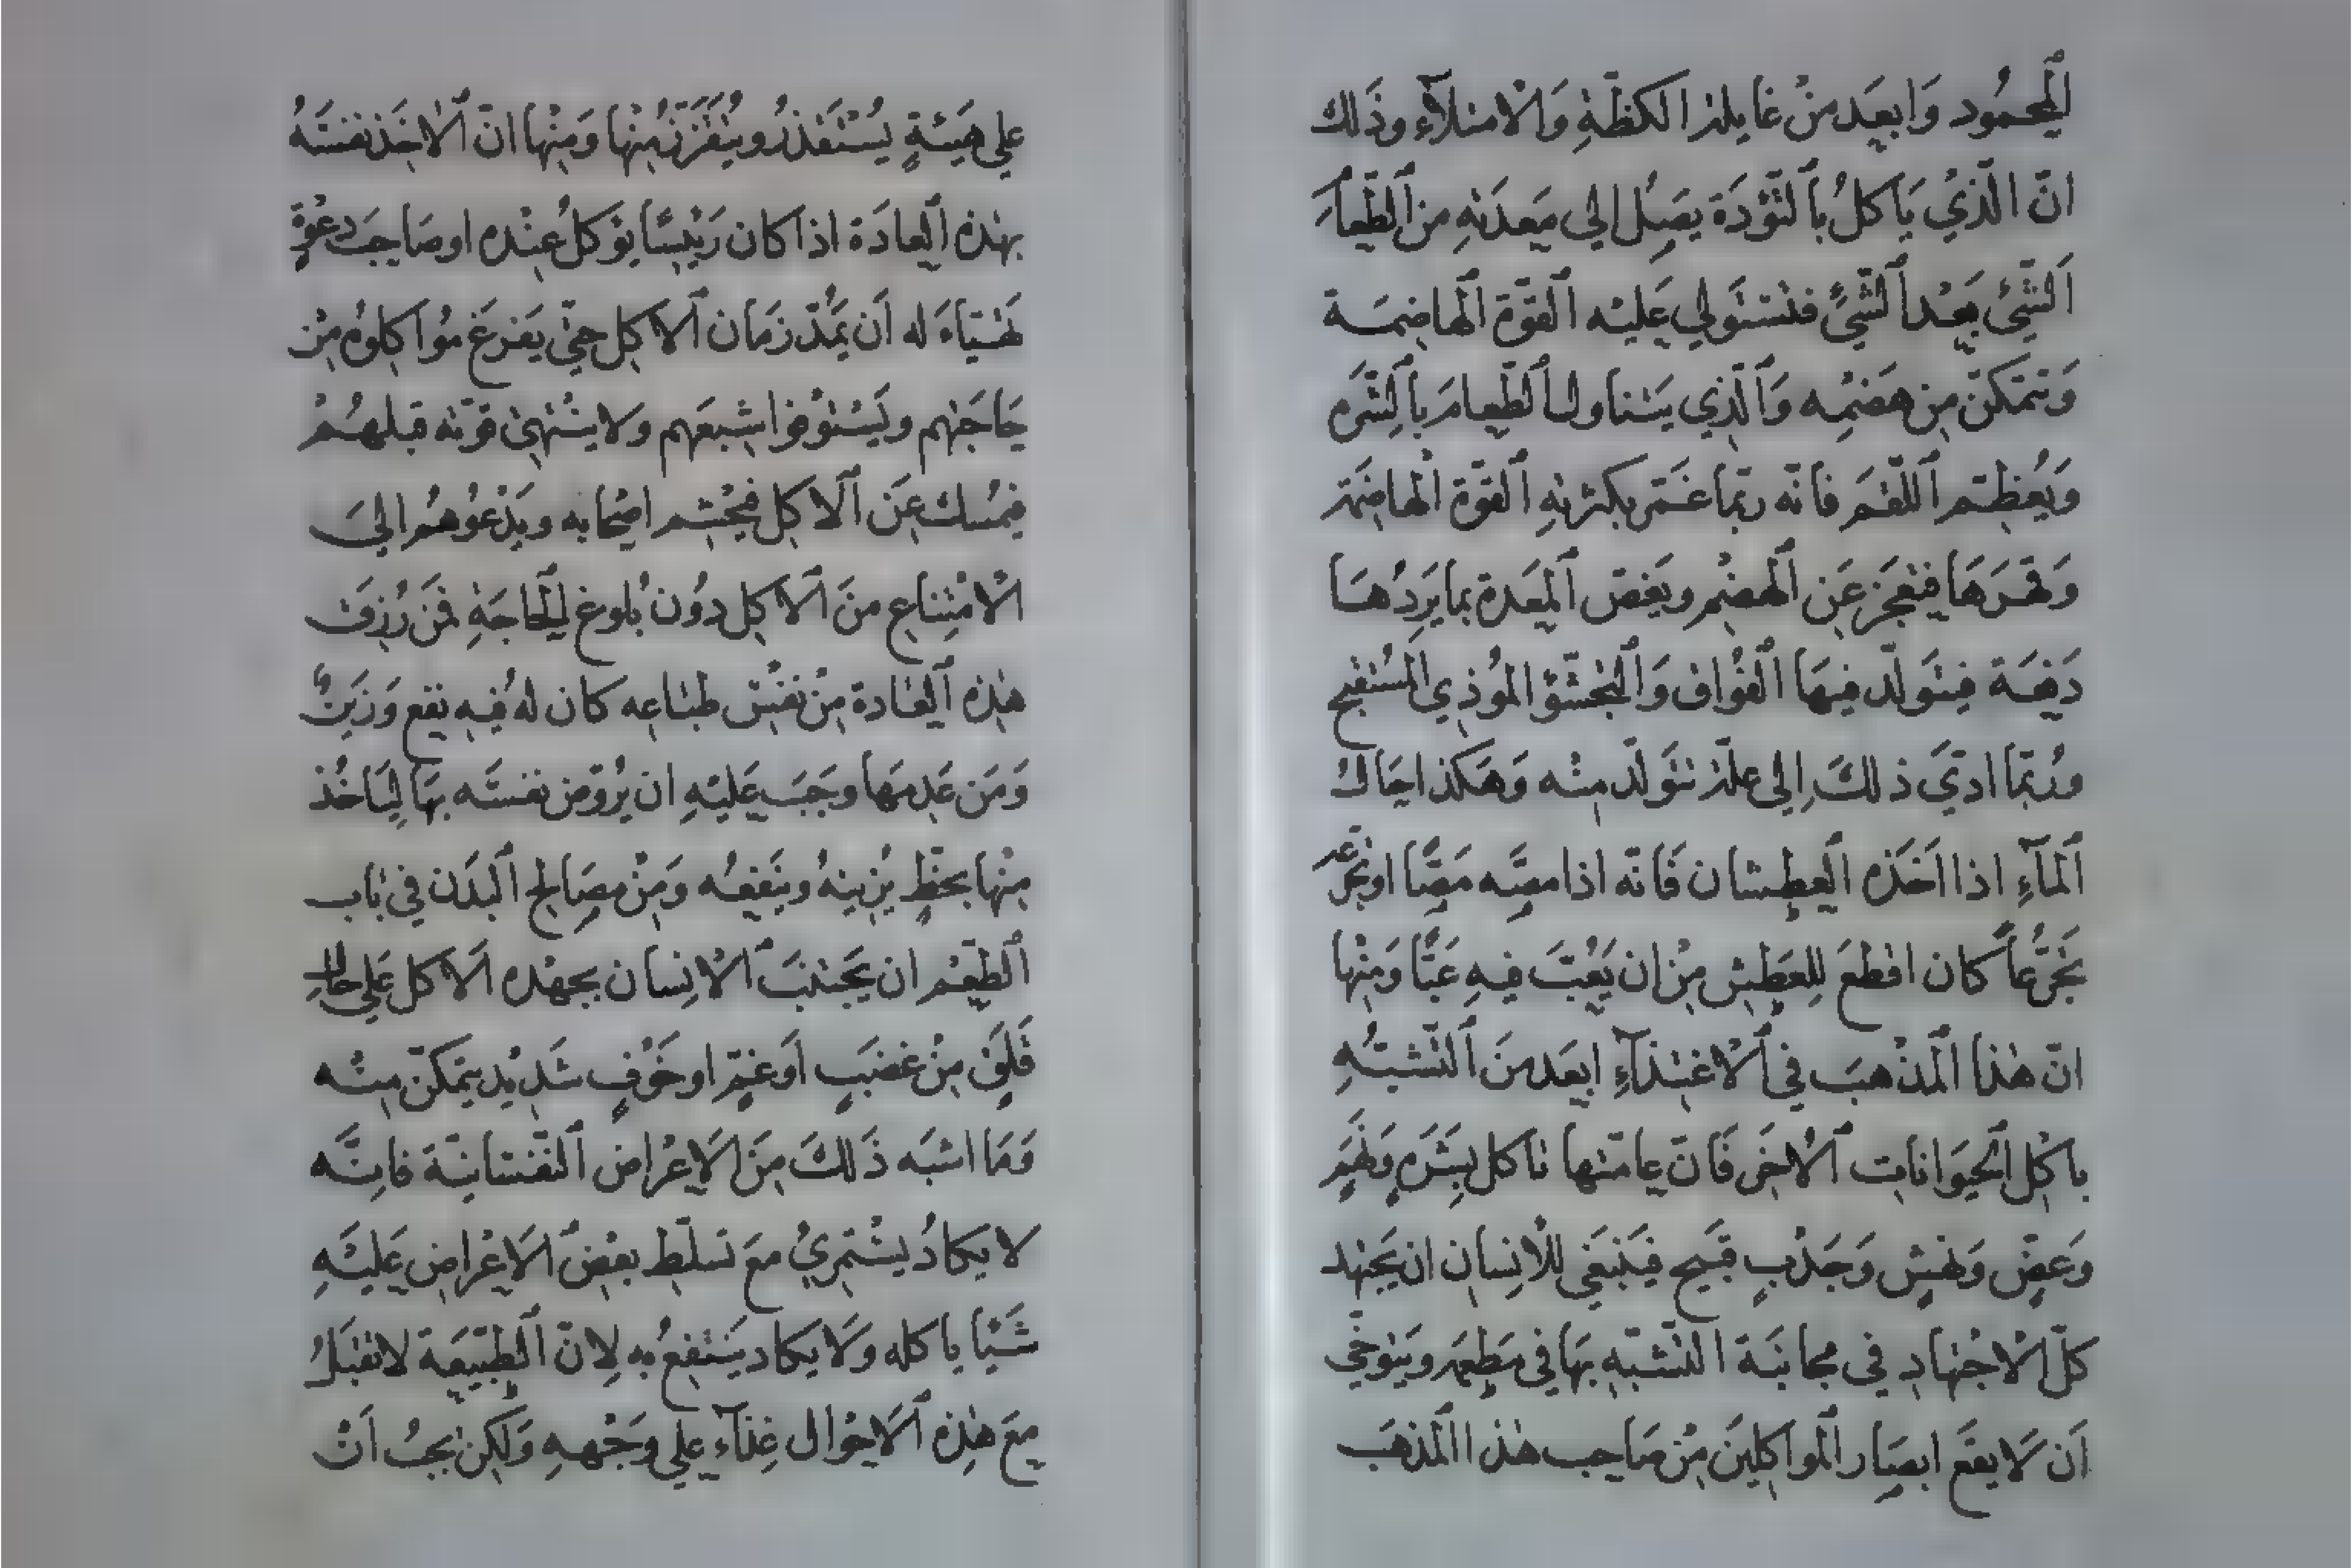 المحمود وَابعَد منْ غايلة الكظّةِ وَالامتلآء وذَلك
انّ الّذيْ يَاكلُ بالتّؤدَة يصِل الي مَعدَتهِ من الطّعام
الشّيْئ بَعْد الشّيْئ فتستَولي عَليْه القوّة الهاضمَة
وَتتمكنّ من هَضمْه وَالّذي يتناول الطّعامَ بالشّرَه
وَيُعظّم اللّقمَ فانّه ربّما غَمَر بكثرتهِ القوّة الهاضمَة
وَقهَرَهَا فتعجَز عَن الهضْم ويَغصّ المعَدة بما يَردُهَا
دَفعَة فيتَولّد فيهَا الفُواق وَالجُشَؤ الموُذي المسُتقبح
ورُبّما ادّيَ ذلكَ إلى علّة تتَولّد منْه وَهَكذا حَال
المآءِ اذا اَخَذه العطشان فَانّه اذا مصَّه مَصًّا او تجَرّعه
تجَرُّعاً كان اقطعَ للعَطِش مِنْ ان يَعُبَّ فيهِ عَبًّا وَمنْها
انّ هذا المذْهبَ في الاغتذآءِ ابعَد منَ التّشبّهِ
باكْل الحيَوانات الاخَر فَانّ عامّتها تاكل بشَرَهٍ وَنهَمٍ
وَعَضٍّ وَنهْشٍ وَجَذْبٍ قبَيح فيَنبَغي للانِسان ان يَجتهد
كلّ الاجْتهادِ في مجانبَة التّشبّهِ بهَا في مَطعَمه ويَتوخّي
اَن لَا يقَعَ ابصَار المواكلينَ منْ صَاحِب هذا المذهَب
علي هَيئةٍ يُسْتَقذَرُ ويُتقزّزُ منْها وَمنْها انّ الاخَذ نفسَهُ
بهٰذه العادَة اذا كان رَئيسًا يؤكلُ عنْده او صَاحبَ دعْوةٍ
تهيّاءَ له اَن يَمُدّ زمَان الاكل حتّي يَفرغَ مُواكلوهُ منْ
حَاجَتهم ويَستوْفوا شبعَهم ولا يَنْتهي قوّته قبلهُمْ
فيمُسك عَن الاكل فيَحْتشم اصْحابه ويَدْعُوهُم الَي
الامْتناع منَ الاكل دوُن بُلوغ الحاجَةِ فمَن رُزقَ
هذه العَادة منْ نفْسْ طبَاعه كان لهُ فيه نفع وَزَينٌ
وَمَن عَدمَهَا وجَبَ عَليْهِ ان يُروّض نفسَه بهَا ليَاخُذ
منْها بحَظٍّ يُزينهُ ويَنفعُه وَمنْ مصَالح البَدَن في بَاب
الطّعْم ان يَجتنبَ الانِسان بجهْده الاكل عَلي حَال
قَلَق منْ غضَبٍ اَو غمٍّ او خَوْفٍ شَديْد يتمَكنّ منْه
وَمَا اشبَه ذَلكَ منَ الاعْراض النّفسَانيّة فانّه
لا يكادُ يسْتَمريُ مَعَ تسلّط بعْضُ الاَعْراض عَليْهِ
شيًَا ياكله وَلَا يكاد يَنتفعُ به لانّ الطّبيَعة لا تقبَلُ
معَ هٰذه الاحْوال غذآءً علي وَجْههِ وَلكن يجبُ اَنْ